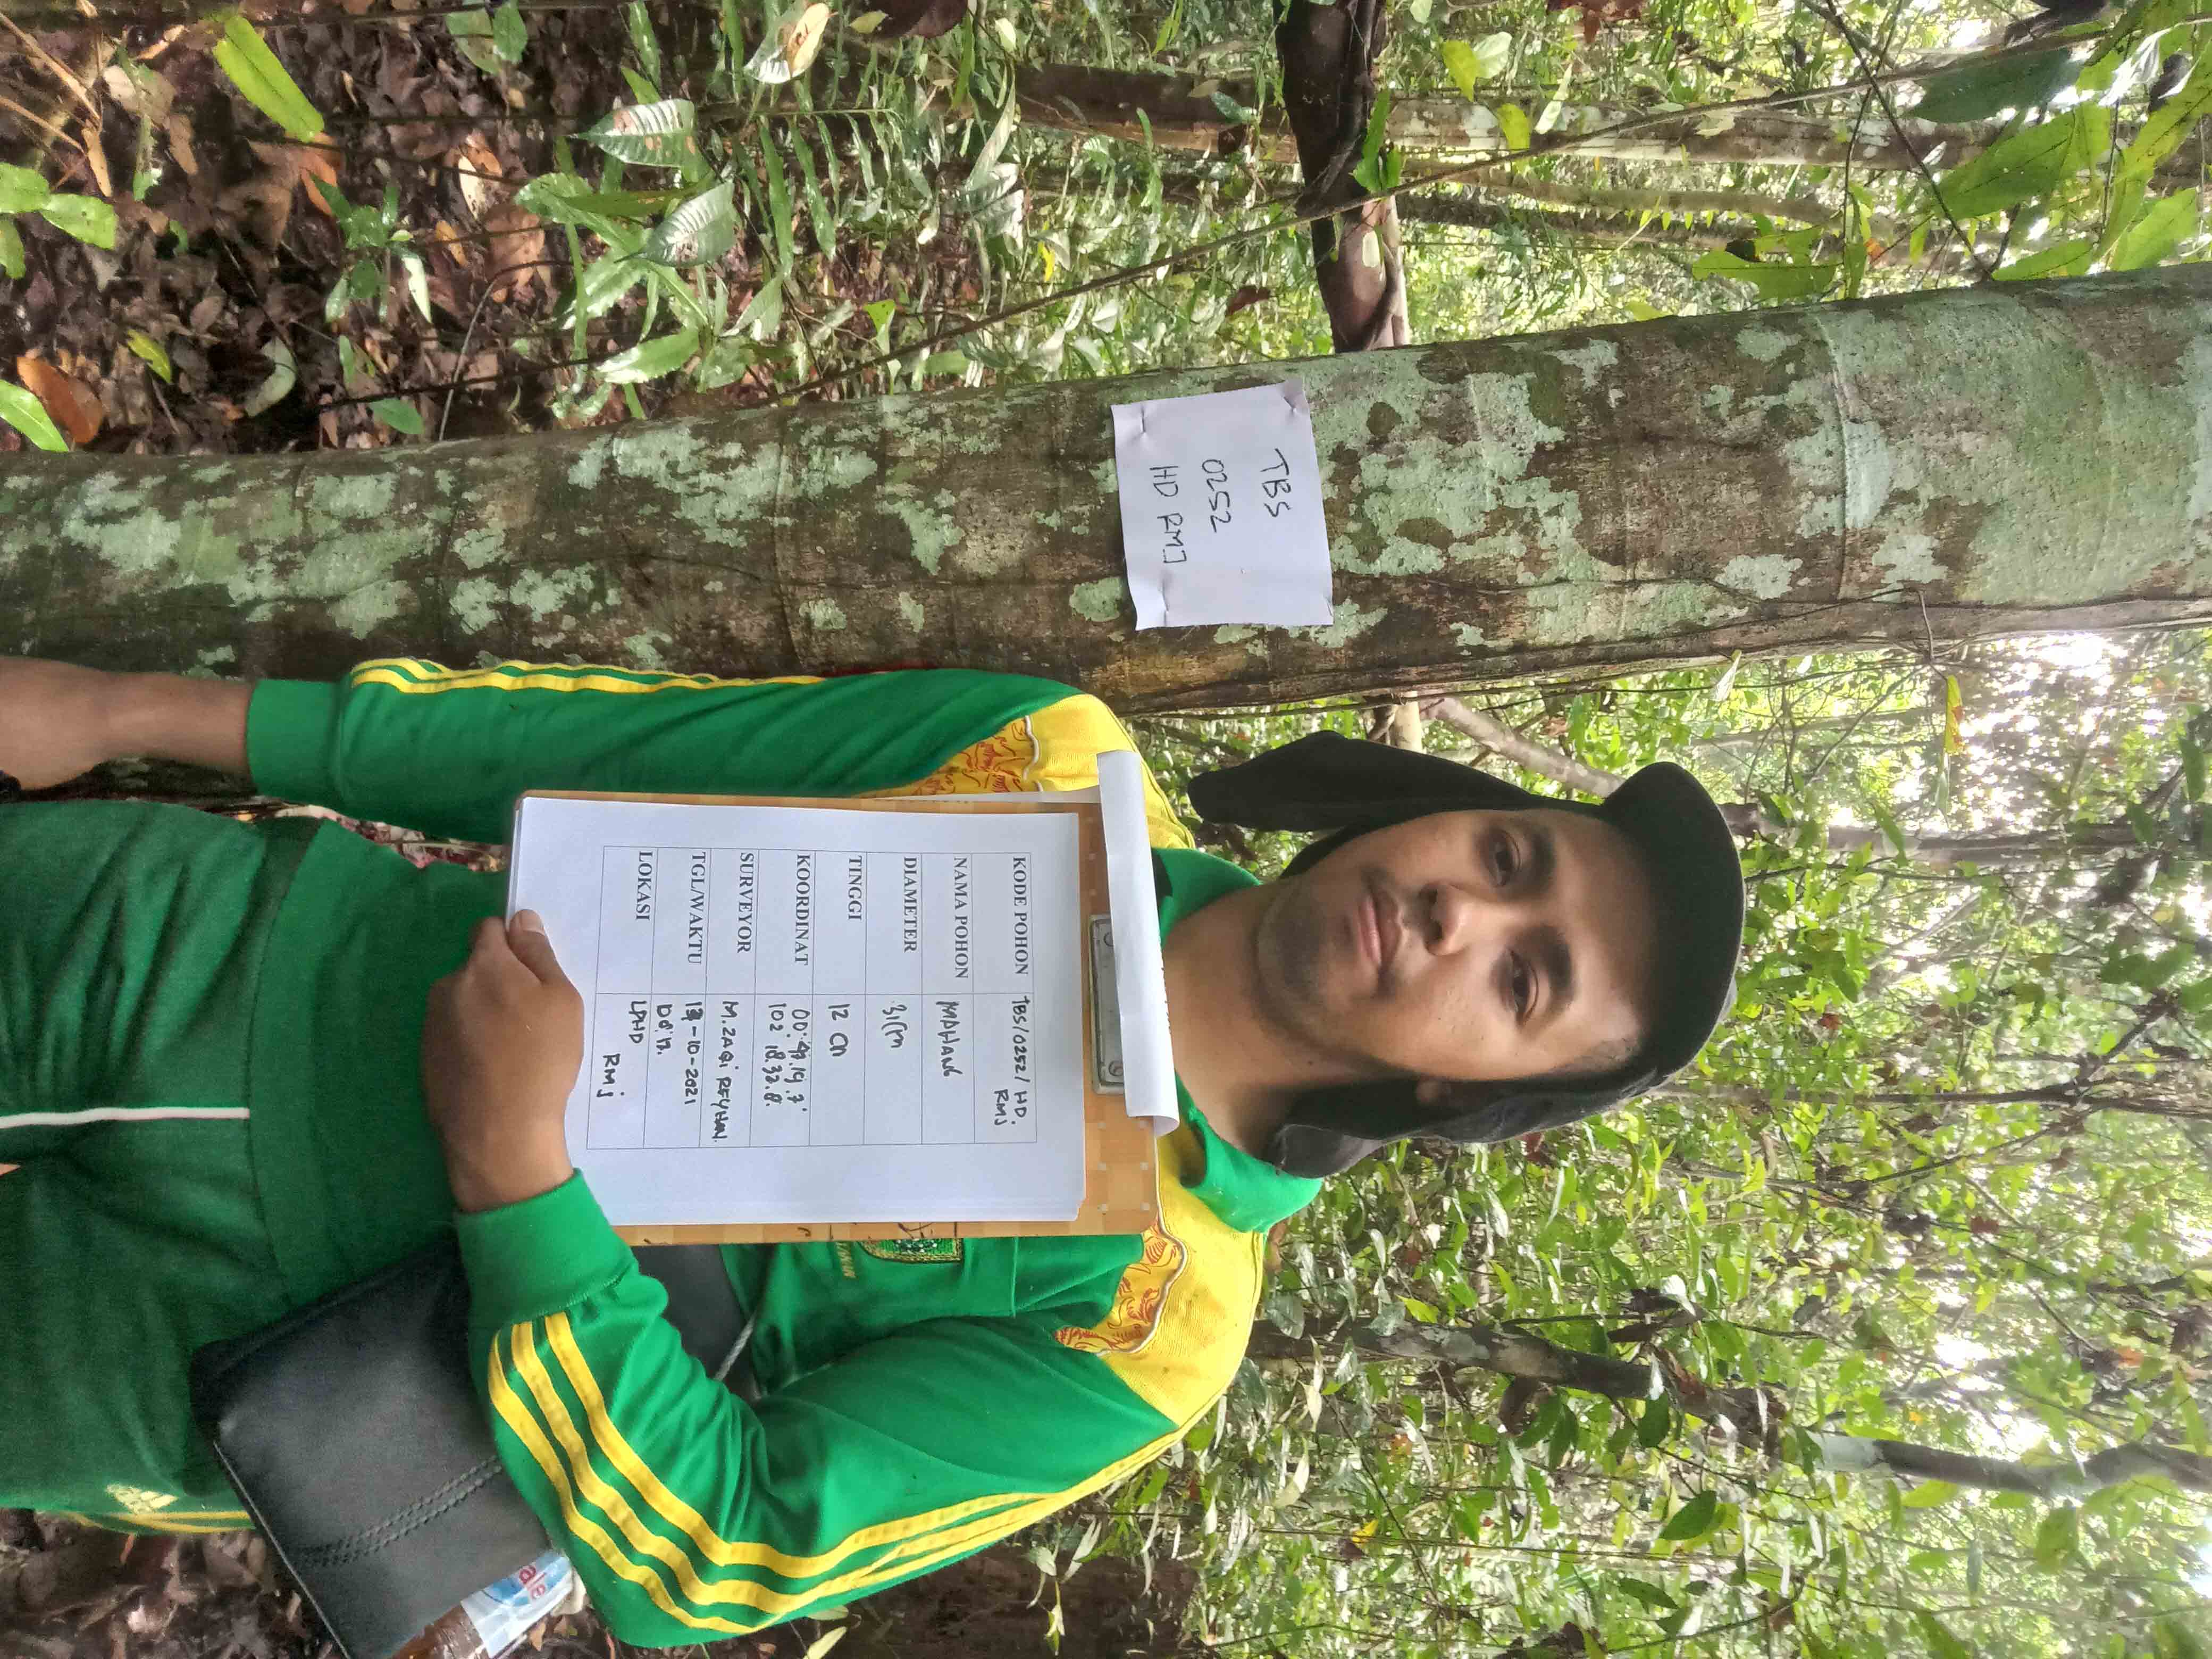 TBS
0252
HD RMJ
KODE POHON TBS/0252/ HD.
RMJ
NAMA POHON MAHANG
DIAMETER 31 Cm
TINGGI 12 Cm
KOORDINAT
102 18.32.8.
SURVEYOR M. ZAQI REYHAN.
TGL/WAKTU -10-2021
LOKASI LPHD
RMJ
ale